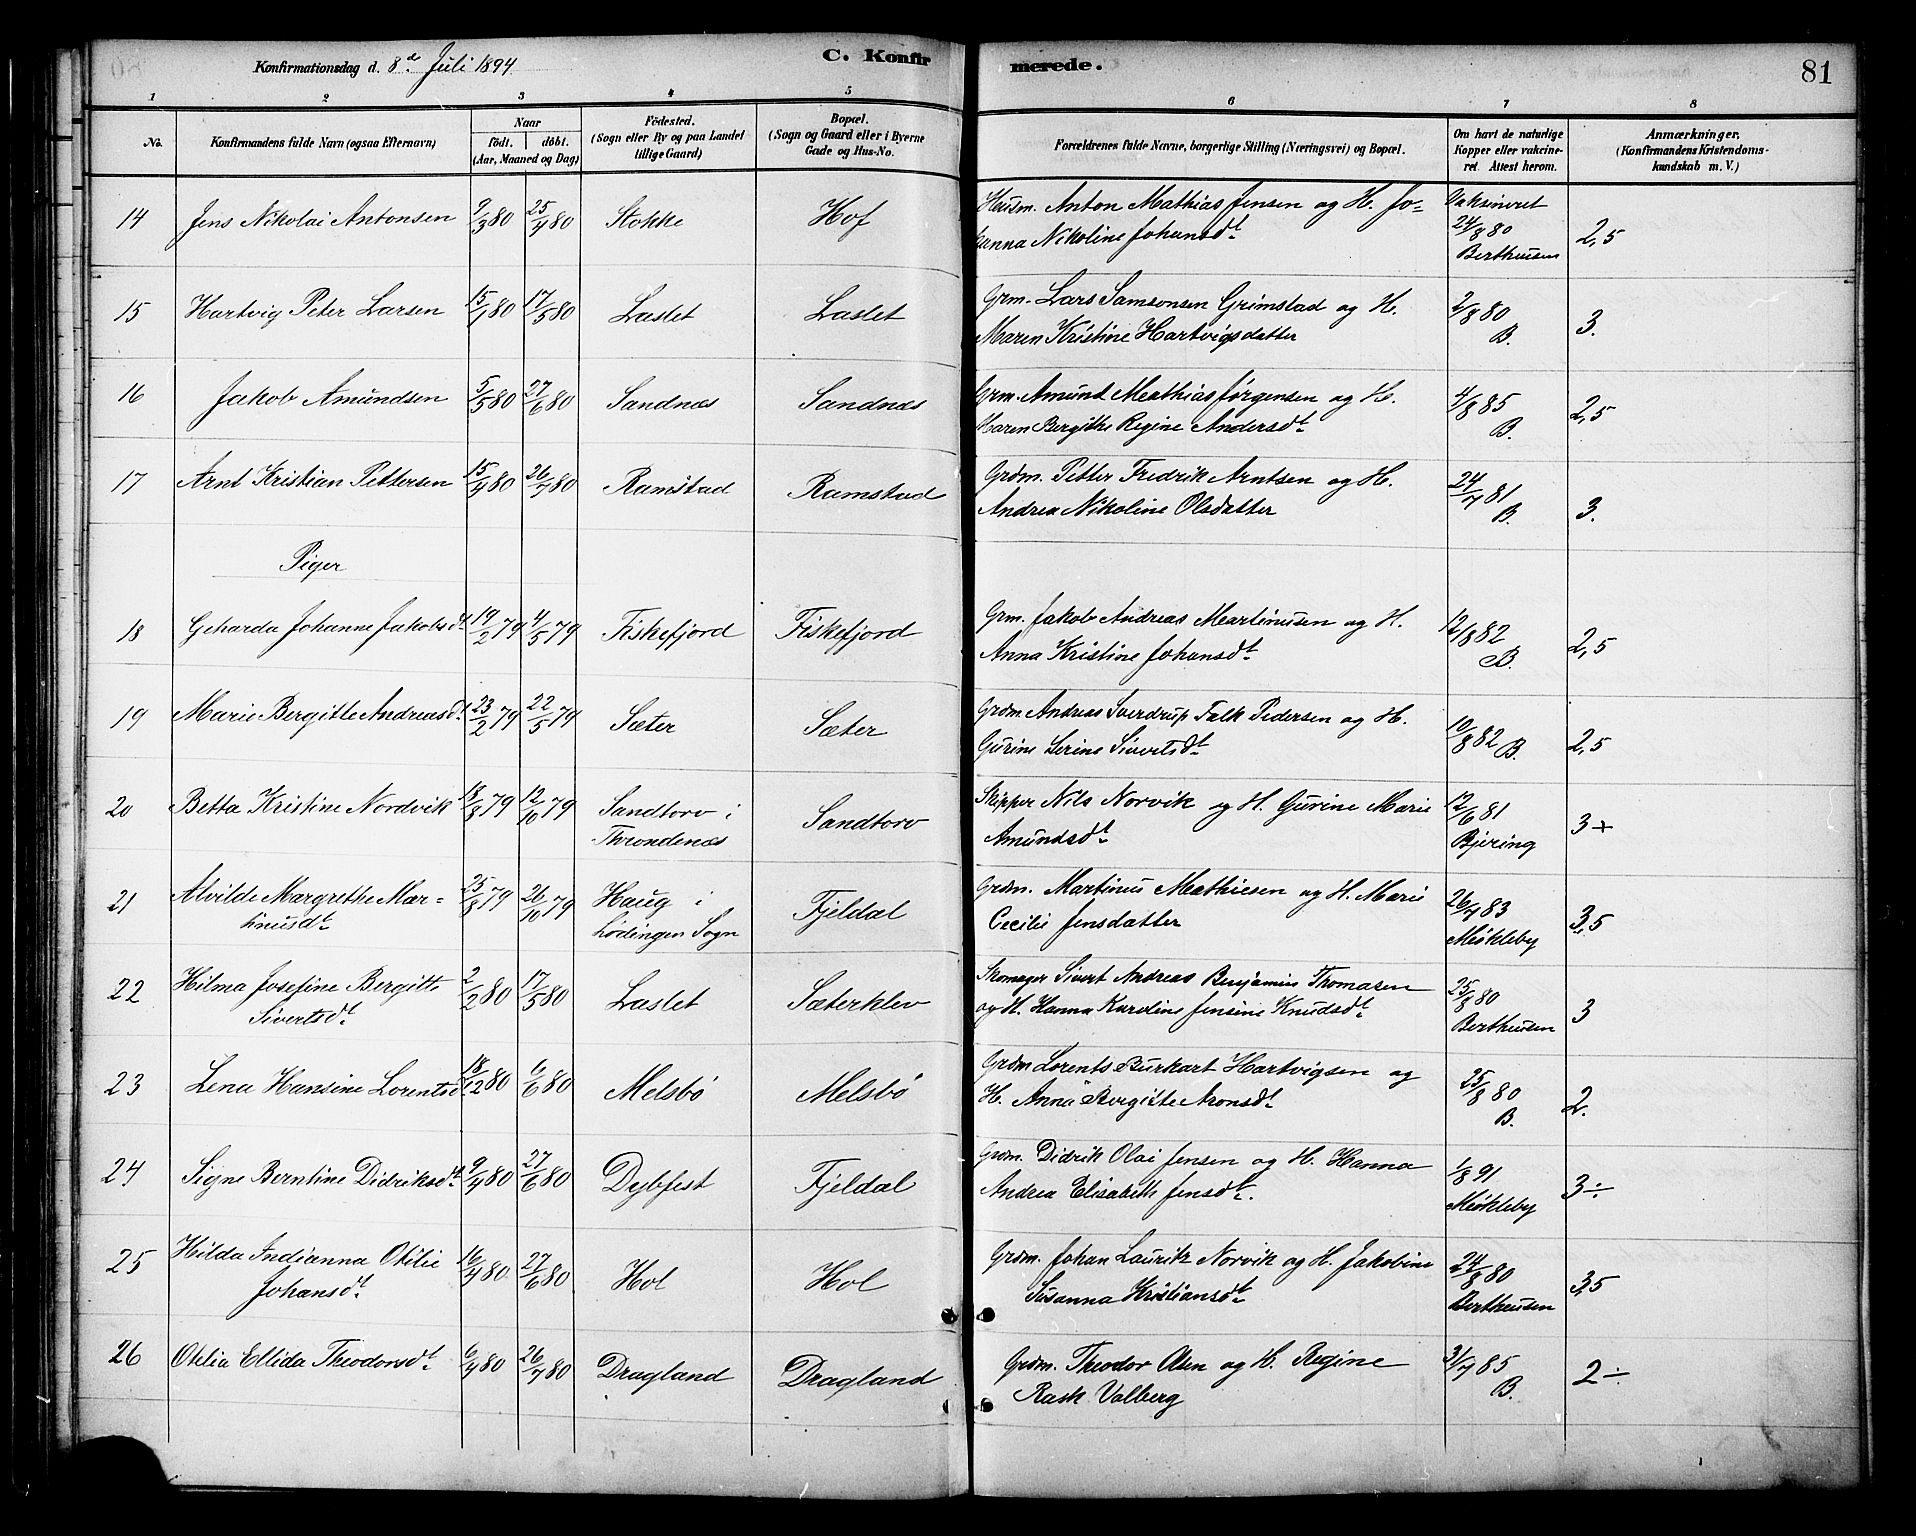 Konfirmationsdag d. 8de Juli 1894
C. Konfirmerede.
81
1 2 3 4 5 6 7 8
No.
Konfirmandens fulde Navn (ogsaa Efternavn)
Naar
födt. döbt.
(Aar, Maaned og Dag)
Födested.
(Sogn eller By og paa Landet
tillige Gaard)
Bopæl.
(Sogn og Gaard eller i Byerne
Gade og Hus-No.
Forældrenes fulde Navne, borgerlige Stilling (Næringsvei) og Bopæl.
Om havt de naturlige
Kopper eller vakcine-
ret. Attest herom.
Anmærkninger,
(Konfirmandens Kristendoms-
kundskab m. V.)
14 Jens Nikolai Antonsen 9/3 80 25/4 80 Stokke Hof Husm. Anton Mathias Jensen og H. Jo=
hanna Nikoline Johansdt. Vaksineret
24/8 80
Bertheusen 2,5
15 Hartvig Peter Larsen 15/1 80 17/5 80 Laslet Laslet Grm. Lars Samsonsen Grimstad og H.
Maren Kristine Hartvigsdatter 2/8 80
B. 3.
16 Jakob Amundsen 5/5 80 27/6 80 Sandnæs Sandnæs Grm. Amund Mathias Jørgensen og H.
Maren Bergithe Regine Andersdt. 4/8 85
B. 2,5
17 Arnt Kristian Pettersen 15/4 80 26/7 80 Ramstad Ramstad Grdm. Petter Fredrik Arntsen og H.
Andrea Nikoline Olsdatter 24/7 81
B. 3.
Piger
18 Geharda Johanne Jakobsdt. 19/2 79 4/5 79 Fiskefjord Fiskefjord Grm. Jakob Andreas Martinusen og H.
Anna Kristine Johansdt. 12/8 82
B. 2,5
19 Marie Bergitte Andreasdt. 23/2 79 22/5 79 Sæter Sæter Grdm. Andreas Sverdrup Falk Pedersen og H.
Gurine Serine Sivertsdt. 10/8 82 B. 2,5
20 Betta Kristine Nordvik 18/8 79 12/10 79 Sandtorv i
Throndenæs Sandtorv Skipper Nils Norvik og H. Gurine Marie
Amundsdt. 12/6 81
Bjering 3+
21 Alvilde Margrethe Mar=
tinusdt. 25/8 79 26/10 79 Haug i
Lødingen Sogn Fjeldal Grdm. Martinus Mathiesen og H. Marie
Cecilie Jensdatter 26/7 83
Møkleby 3,5
22 Hilma Josefine Bergitte
Sivertsdt. 2/2 80 17/5 80 Laslet Sæterklev Skomager Sivert Andreas Benjamin Thomasen
og H. Hanna Karoline Jensine Knudsdt. 25/8 80
Bertheusen 3
23 Lena Hansine Lorentsdt. 18/12 80 6/6 80 Melsbö Melsbö Grdm Lorents Burkart Hartvigsen og
H. Anna Bergitte Aronsdt. 25/8 80
B. 2.
24 Signe Berntine Didriksdt. 9/4 80 27/6 80 Dybfest Fjeldal Grdm. Didrik Olai Jensen og H. Hanna
Andrea Elisabeth Jensdt. 1/8 91
Møkleby 3÷
25 Hilda Indianna Otilie
Johansdt. 16/4 80 27/6 80 Hol Hol Grdm. Johan Lauritz Norvik og H. Jakobine
Susanna Kristiansdt. 24/8 80
Bertheusen 3,5
26 Otelia Ellida Theodorsdt. 6/4 80 26/7 80 Dragland Dragland Grdm. Theodor Olsen og H. Regine
Rask Valberg 31/7 85
B. 2÷